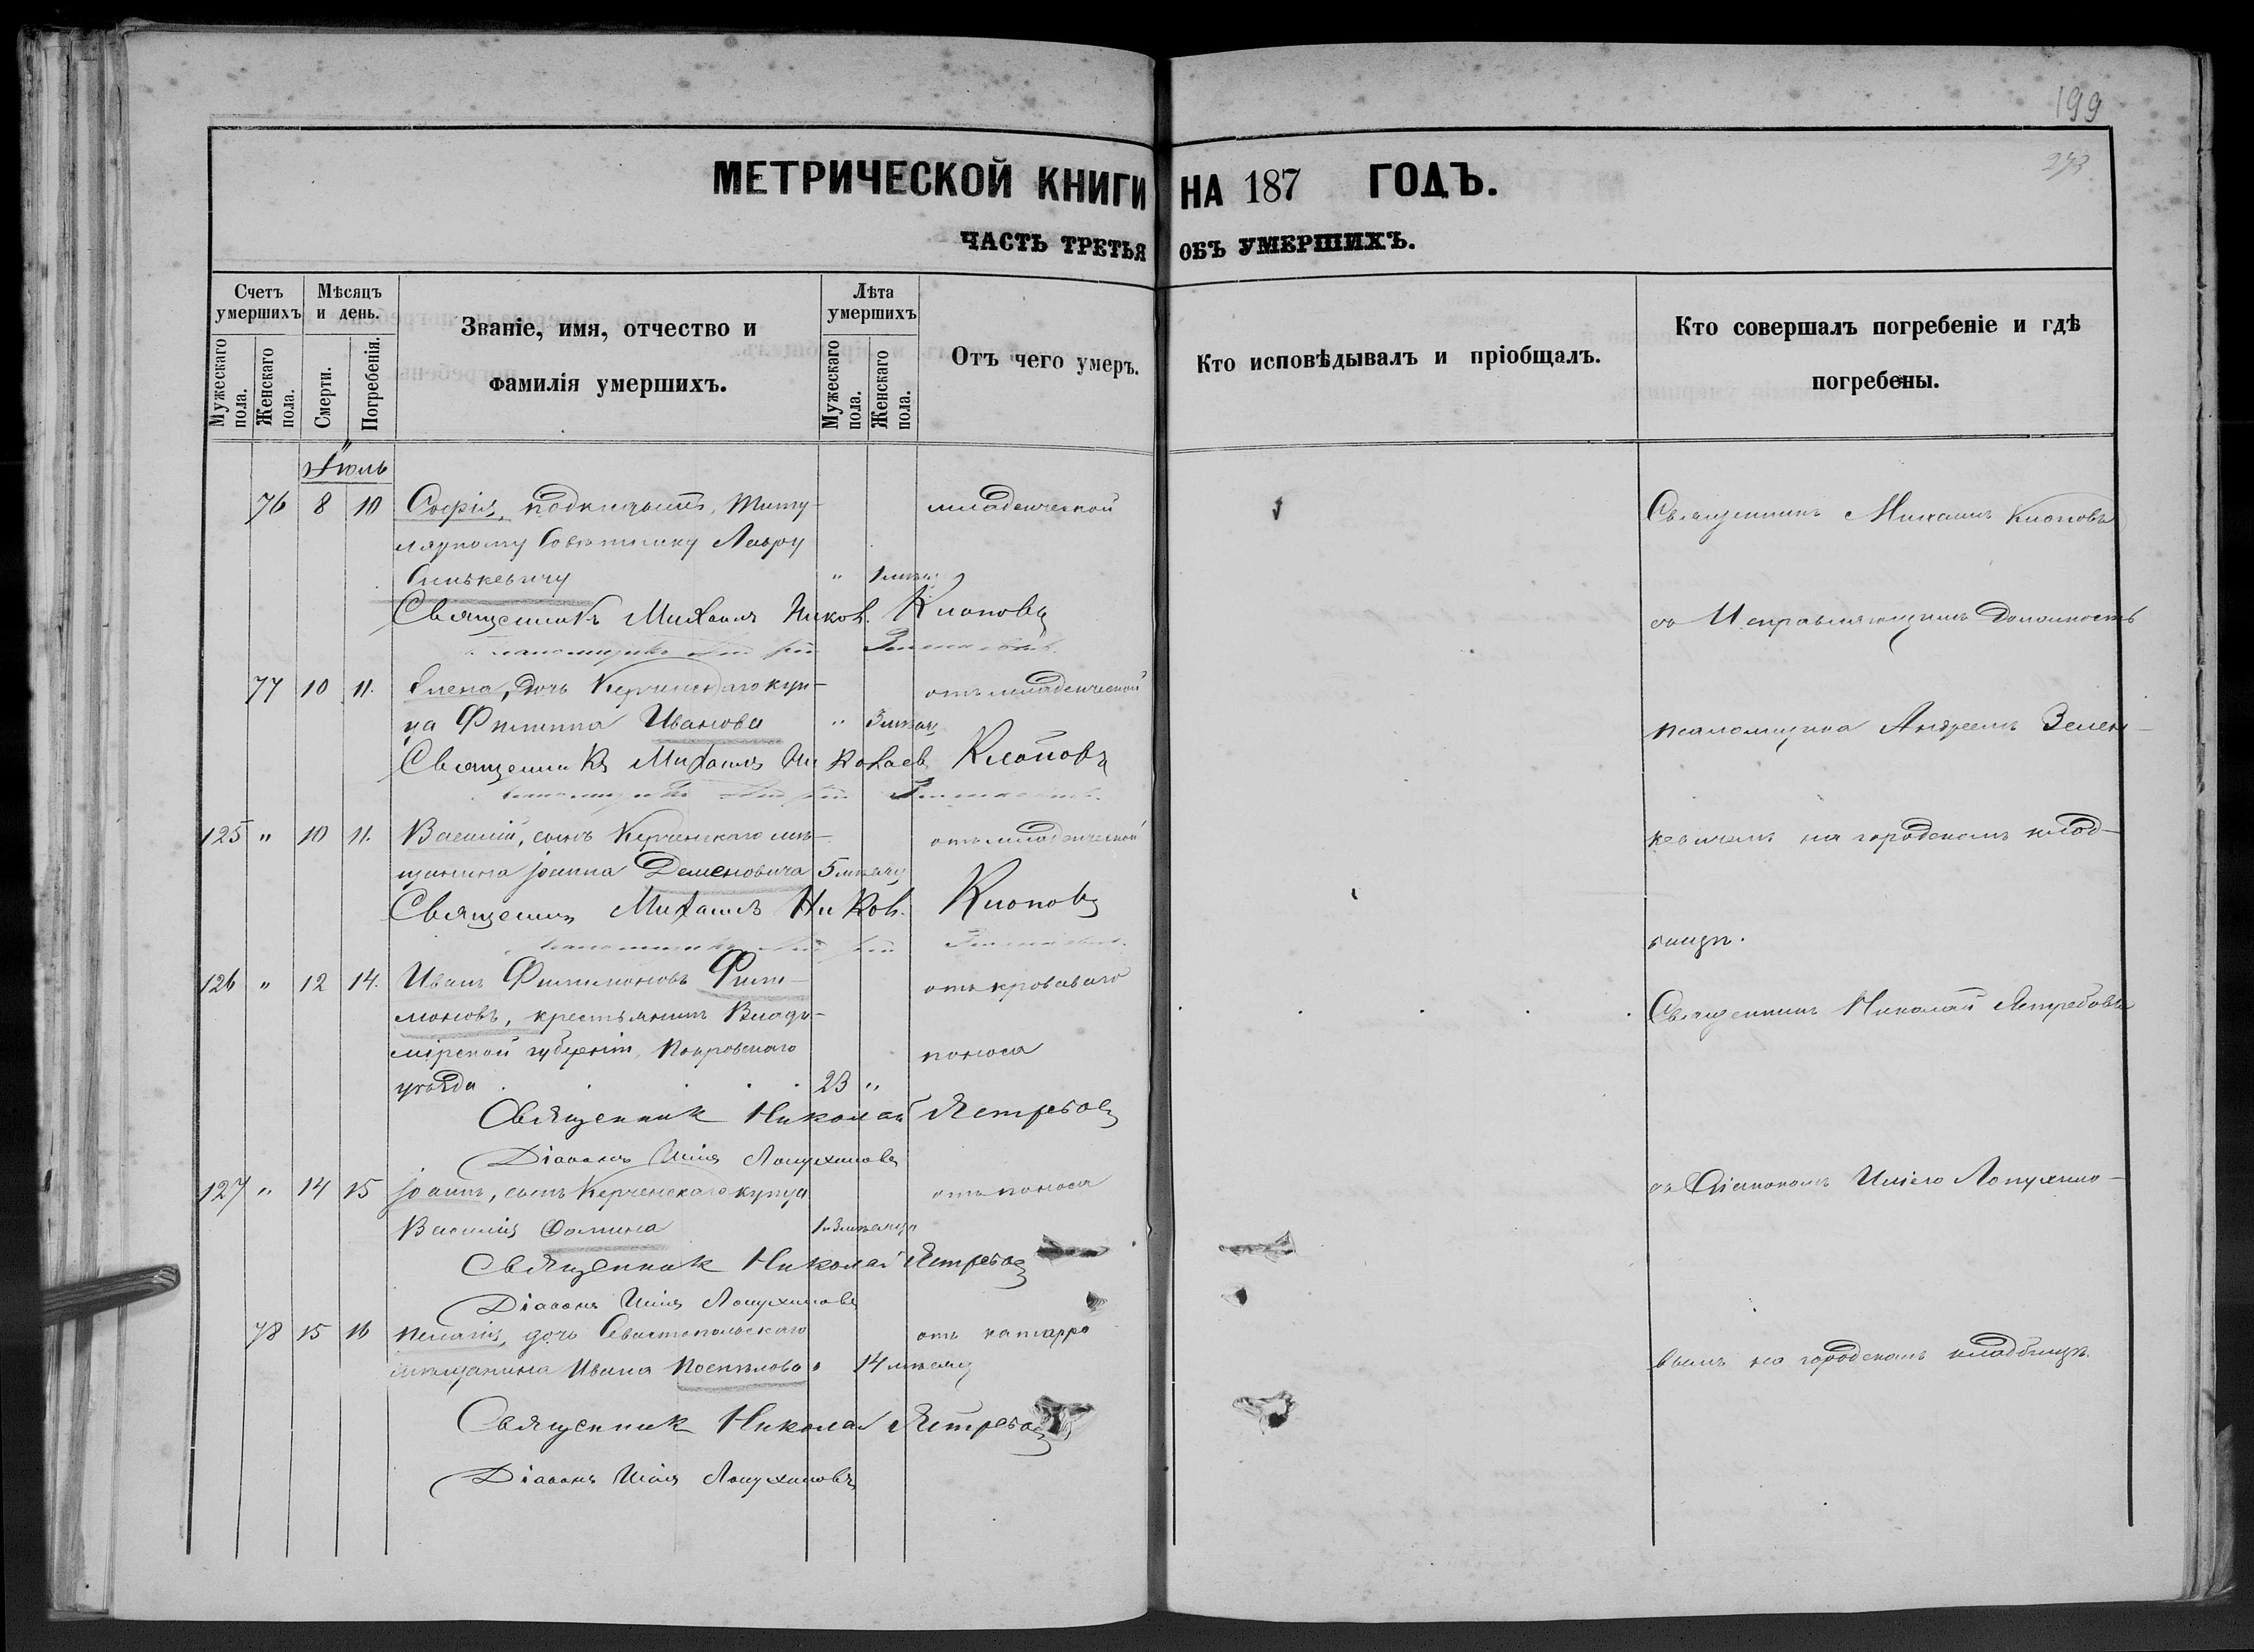 199
273
МЕТРИЧЕСКОЙ КНИГИ НА 187 ГОДЪ.
ЧАСТЬ ТРЕТЬЯ ОБЪ УМЕРШИХЪ.
Счетъ умершихъ
Мужескаго пола.
Женскаго пола.
Мѣсяцъ и день.
Смерти.
Погребенія.
Званіе, имя, отчество и
фамилія умершихъ.
Лѣта умершихъ
Мужескаго пола.
Женскаго пола.
Отъ чего умеръ.
Кто исповѣдывалъ и пріобщалъ.
Кто совершалъ погребеніе и гдѣ
погребены.
Іюль
76 8 10 Софія, подкидышъ, Титу- младенческой Священникъ Михаилъ Клоповъ
лярному Совѣтнику Лавру
Синькевичу " 1 мѣсяц
Священникъ Михаилъ Никол. Клоповъ съ Исправляющимъ Должность
77 10 11. Елена, дочь Керченскаго куп- отъ младенческой
ца Филиппа Иванова " 3 мѣсяц псаломщика Андреемъ Зелен-
Священникъ Михаилъ Николаев Клоповъ
125 " 10 11. Василій, сынъ Керченскаго мѣ- отъ младенческой кевичемъ на городскомъ клад-
щанина Іоанна Деменовича 5 мѣсяц
Священникъ Михаилъ Никол. Клоповъ
бищѣ.
126 " 12 14. Иванъ Филимоновъ Фили- отъ кроваваго Священникъ Николай Ястребовъ
моновъ, крестьянинъ Влади-
мірской губерніи, Покровскаго поноса
уѣзда 23 "
Священник Николай Ястребов
Діаконъ Илія Лопухиновъ
127 " 14 15 Іоаннъ, сынъ Керченскаго купца отъ поноса съ Діакономъ Иліею Лопухино-
Василія Фомина 1 г. 3 мѣсяца
Священник Николай Ястребов
Діаконъ Илія Лопухиновъ
78 15 16 Пелагія, дочь Севастопольскаго отъ катарра
мѣщанина Ивана Поспѣлова " 14 мѣсяц вымъ на городскомъ кладбищѣ.
Священник Николай Ястребов
Діаконъ Илія Лопухиновъ